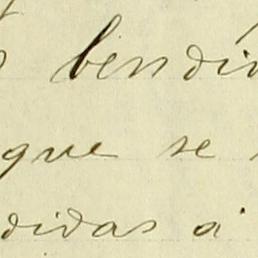 bendi
que se
didas á